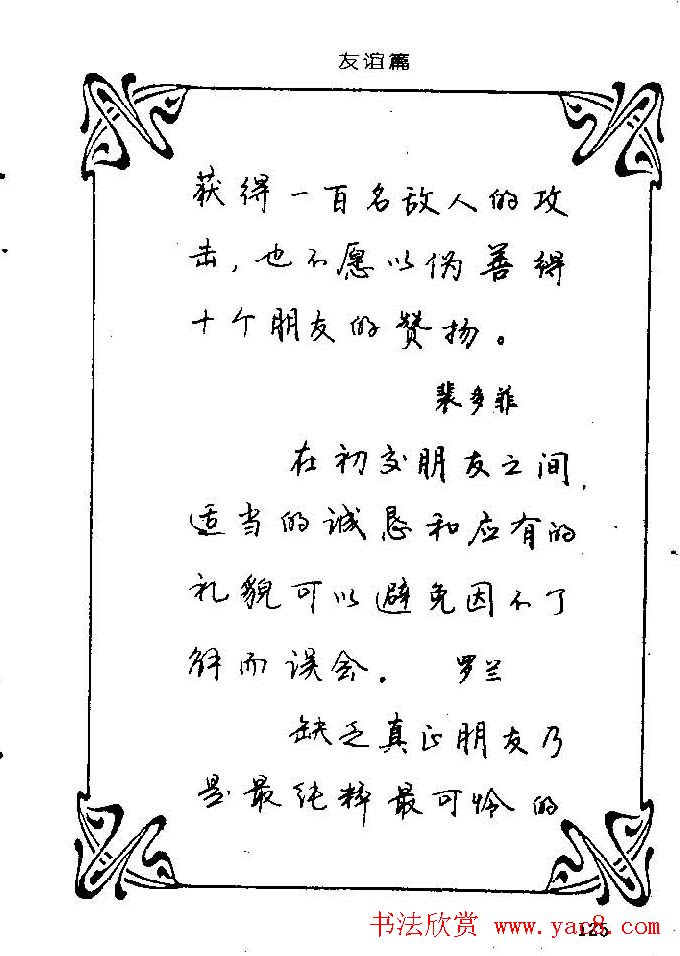 友谊篇
获得一百名敌人的攻
击，也不愿以伪善得
十个朋友的赞扬。
裴多菲
在初交朋友之间，
适当的诚恳和应有的
礼貌可以避免因不了
解而误会。 罗兰
缺乏真正朋友乃
是最纯粹最可怜的
书法欣赏 www.yac8.com
125